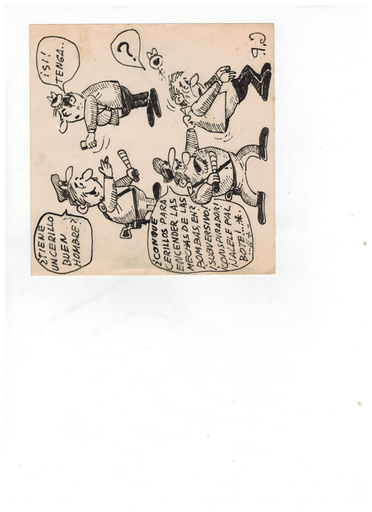 ¿TIENE
UN CERILLO
BUEN
HOMBRE?
¡SI!
TENGA..
¿CONQUE
CERILLOS PARA
ENCENDER LAS
MECHAS DE LAS
BOMBAS, EH?
¡SUBVERSIVO!
¡CONSPIRADOR!
¡JALELE PAL
BOTE!...*..
?